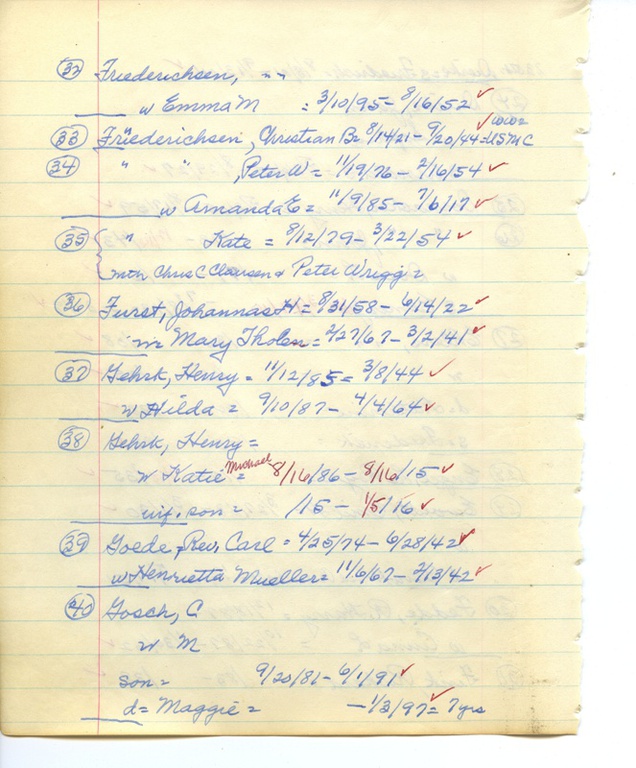 32 Friederichsen, --
w Emma M = 3/10/95 - 8/16/52 ✓
33 Friederichsen, Christian B = 8/14/21 - 9/20/44 = USMC ✓ WW2
34 " " , Peter W = 11/19/76 - 2/16/54 ✓
w Amanda E = 11/9/85 - 7/6/17 ✓
35 { " Kate = 8/12/79 - 3/22/54 ✓
mth Chris C Clausen & Peter Wrigg =
36 Furst, Johannas H = 8/31/58 - 6/14/22 ✓
m Mary Tholen = 2/27/67 - 3/2/41 ✓
37 Gehrk, Henry = 11/12/85 = 3/8/44 ✓
w Hilda = 9/10/87 - 4/4/64 ✓
38 Gehrk, Henry =
w Katie Michael = 8/16/86 - 8/16/15 ✓
inf. son = /15 - 1/5/16 ✓
39 Goede, Rev. Carl = 4/25/74 - 6/28/42 ✓
w Henrietta Mueller = 11/6/67 - 2/13/42 ✓
40 Gosch, C
w M
son = 9/20/81 - 6/1/91 ✓
d = Maggie = - 1/3/97 = 7 yrs ✓